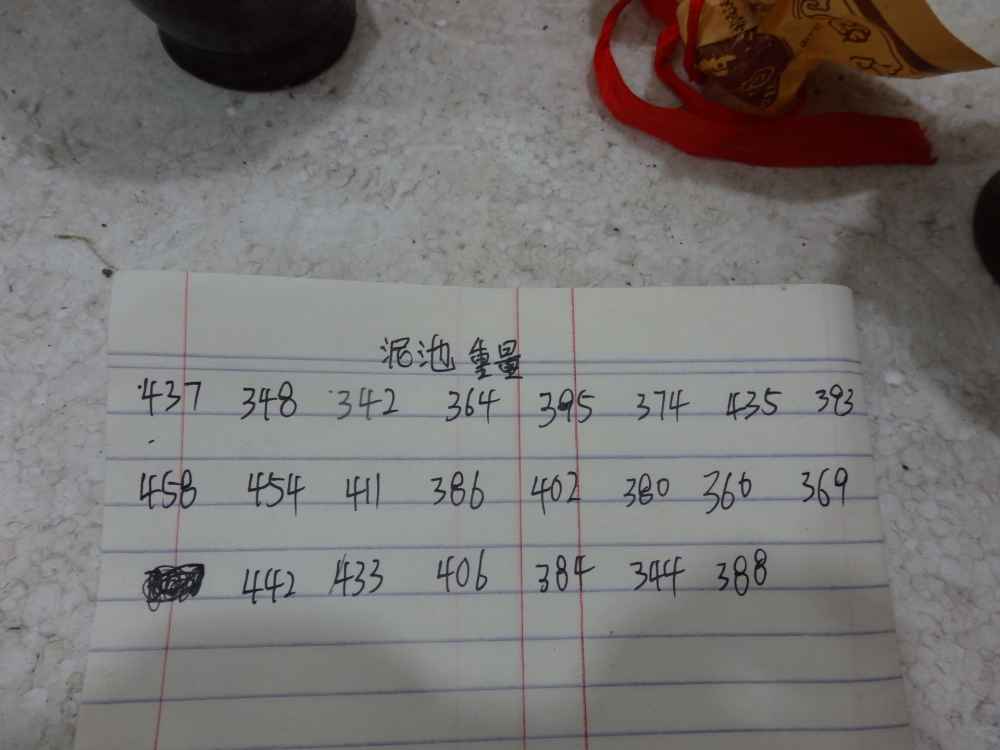 泥池重量
437 348 342 364 395 374 435 393
458 454 411 386 402 380 366 369
442 433 406 384 344 388